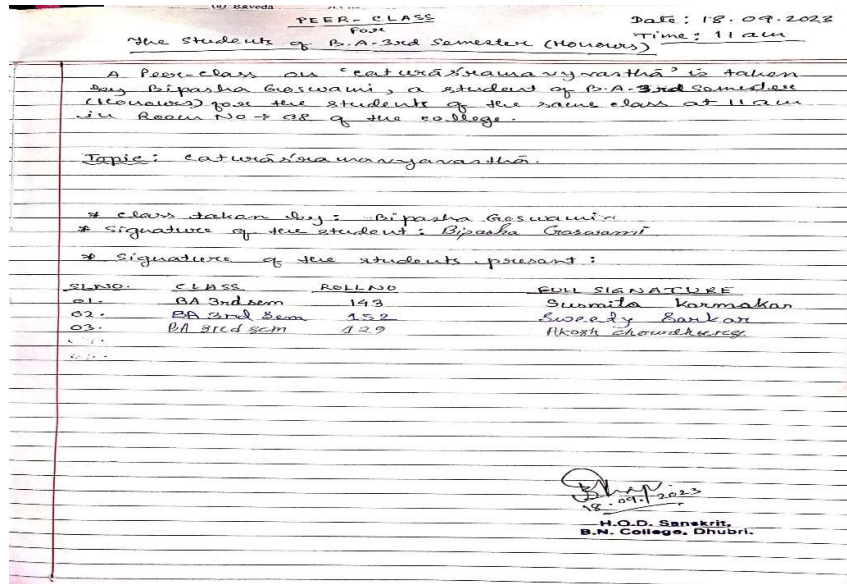 PEER-CLASS Date: 18.09.2023
For Time: 11 am
The Students of B.A-3rd Semester (Honours)
A Peer-class on 'caturāśramavyvasthā' is taken
by Bipasha Goswami, a student of B.A-3rd Semester
(Honours) for the students of the same class at 11 am
in Room No → 08 of the college.
Topic: caturāśramavyavasthā.
* class taken by: Bipasha Goswami
* Signature of the student: Bipasha Goswami
* Signature of the students present:
SLNO. CLASS ROLLNO FULL SIGNATURE
01. BA 3rd sem 143 Susmita Karmakar
02. BA 3rd Sem 152 Sweety Sarkar
03. BA 3rd sem 129 Akash Chowdhury
18.09.2023
H.O.D. Sanskrit,
B.N. College, Dhubri.